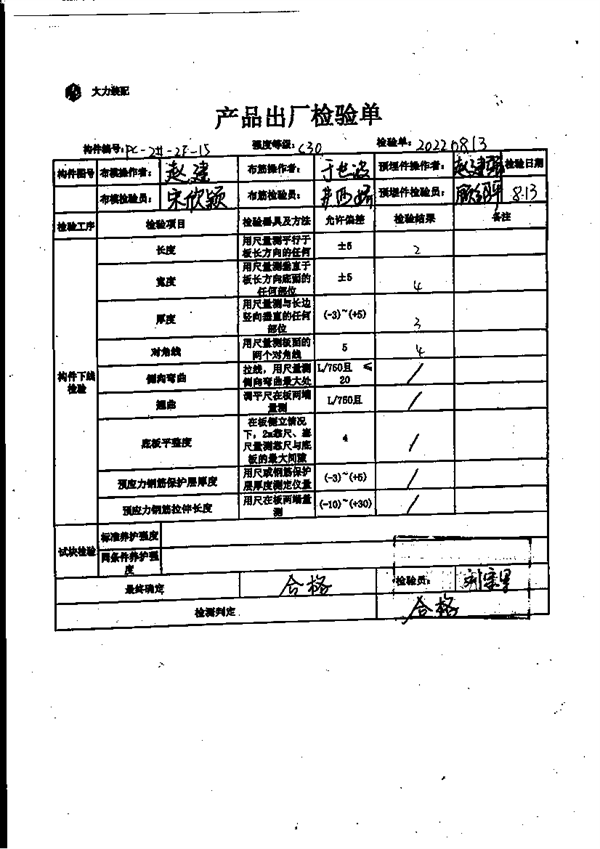 大力装配
产品出厂检验单
构件编号: PC-2#-2F-15 强度等级: C30 检验单: 20220813
构件图号 布模操作者: 赵建 布筋操作者: 预埋件操作者: 检验日期
布模检验员: 宋欣颖 布筋检验员: 预埋件检验员: 8.13
检验工序 检验项目 检验器具及方法 允许偏差 检验结果 备注
构件下线检验
长度 用尺量测平行于板长方向的任何 ±5 2
宽度 用尺量测垂直于板长方向底面的任何部位 ±5 4
厚度 用尺量测与长边竖向垂直的任何部位 (-3)~(+5) 3
对角线 用尺量测板面的两个对角线 5 4
侧向弯曲 拉线,用尺量测侧向弯曲最大处 L/750且 ≤20 /
翘曲 调平尺在板两端量测 L/750且 /
底板平整度 在板侧立情况下,2m靠尺、塞尺量测靠尺与底板的最大间隙 4 /
预应力钢筋保护层厚度 用尺或钢筋保护层厚度测定仪量 (-3)~(+5) /
预应力钢筋拉伸长度 用尺在板两端量测 (-10)~(+30) /
试块检验 标准养护强度
同条件养护强度
最终确定 合格 检验员:
检测判定 合格